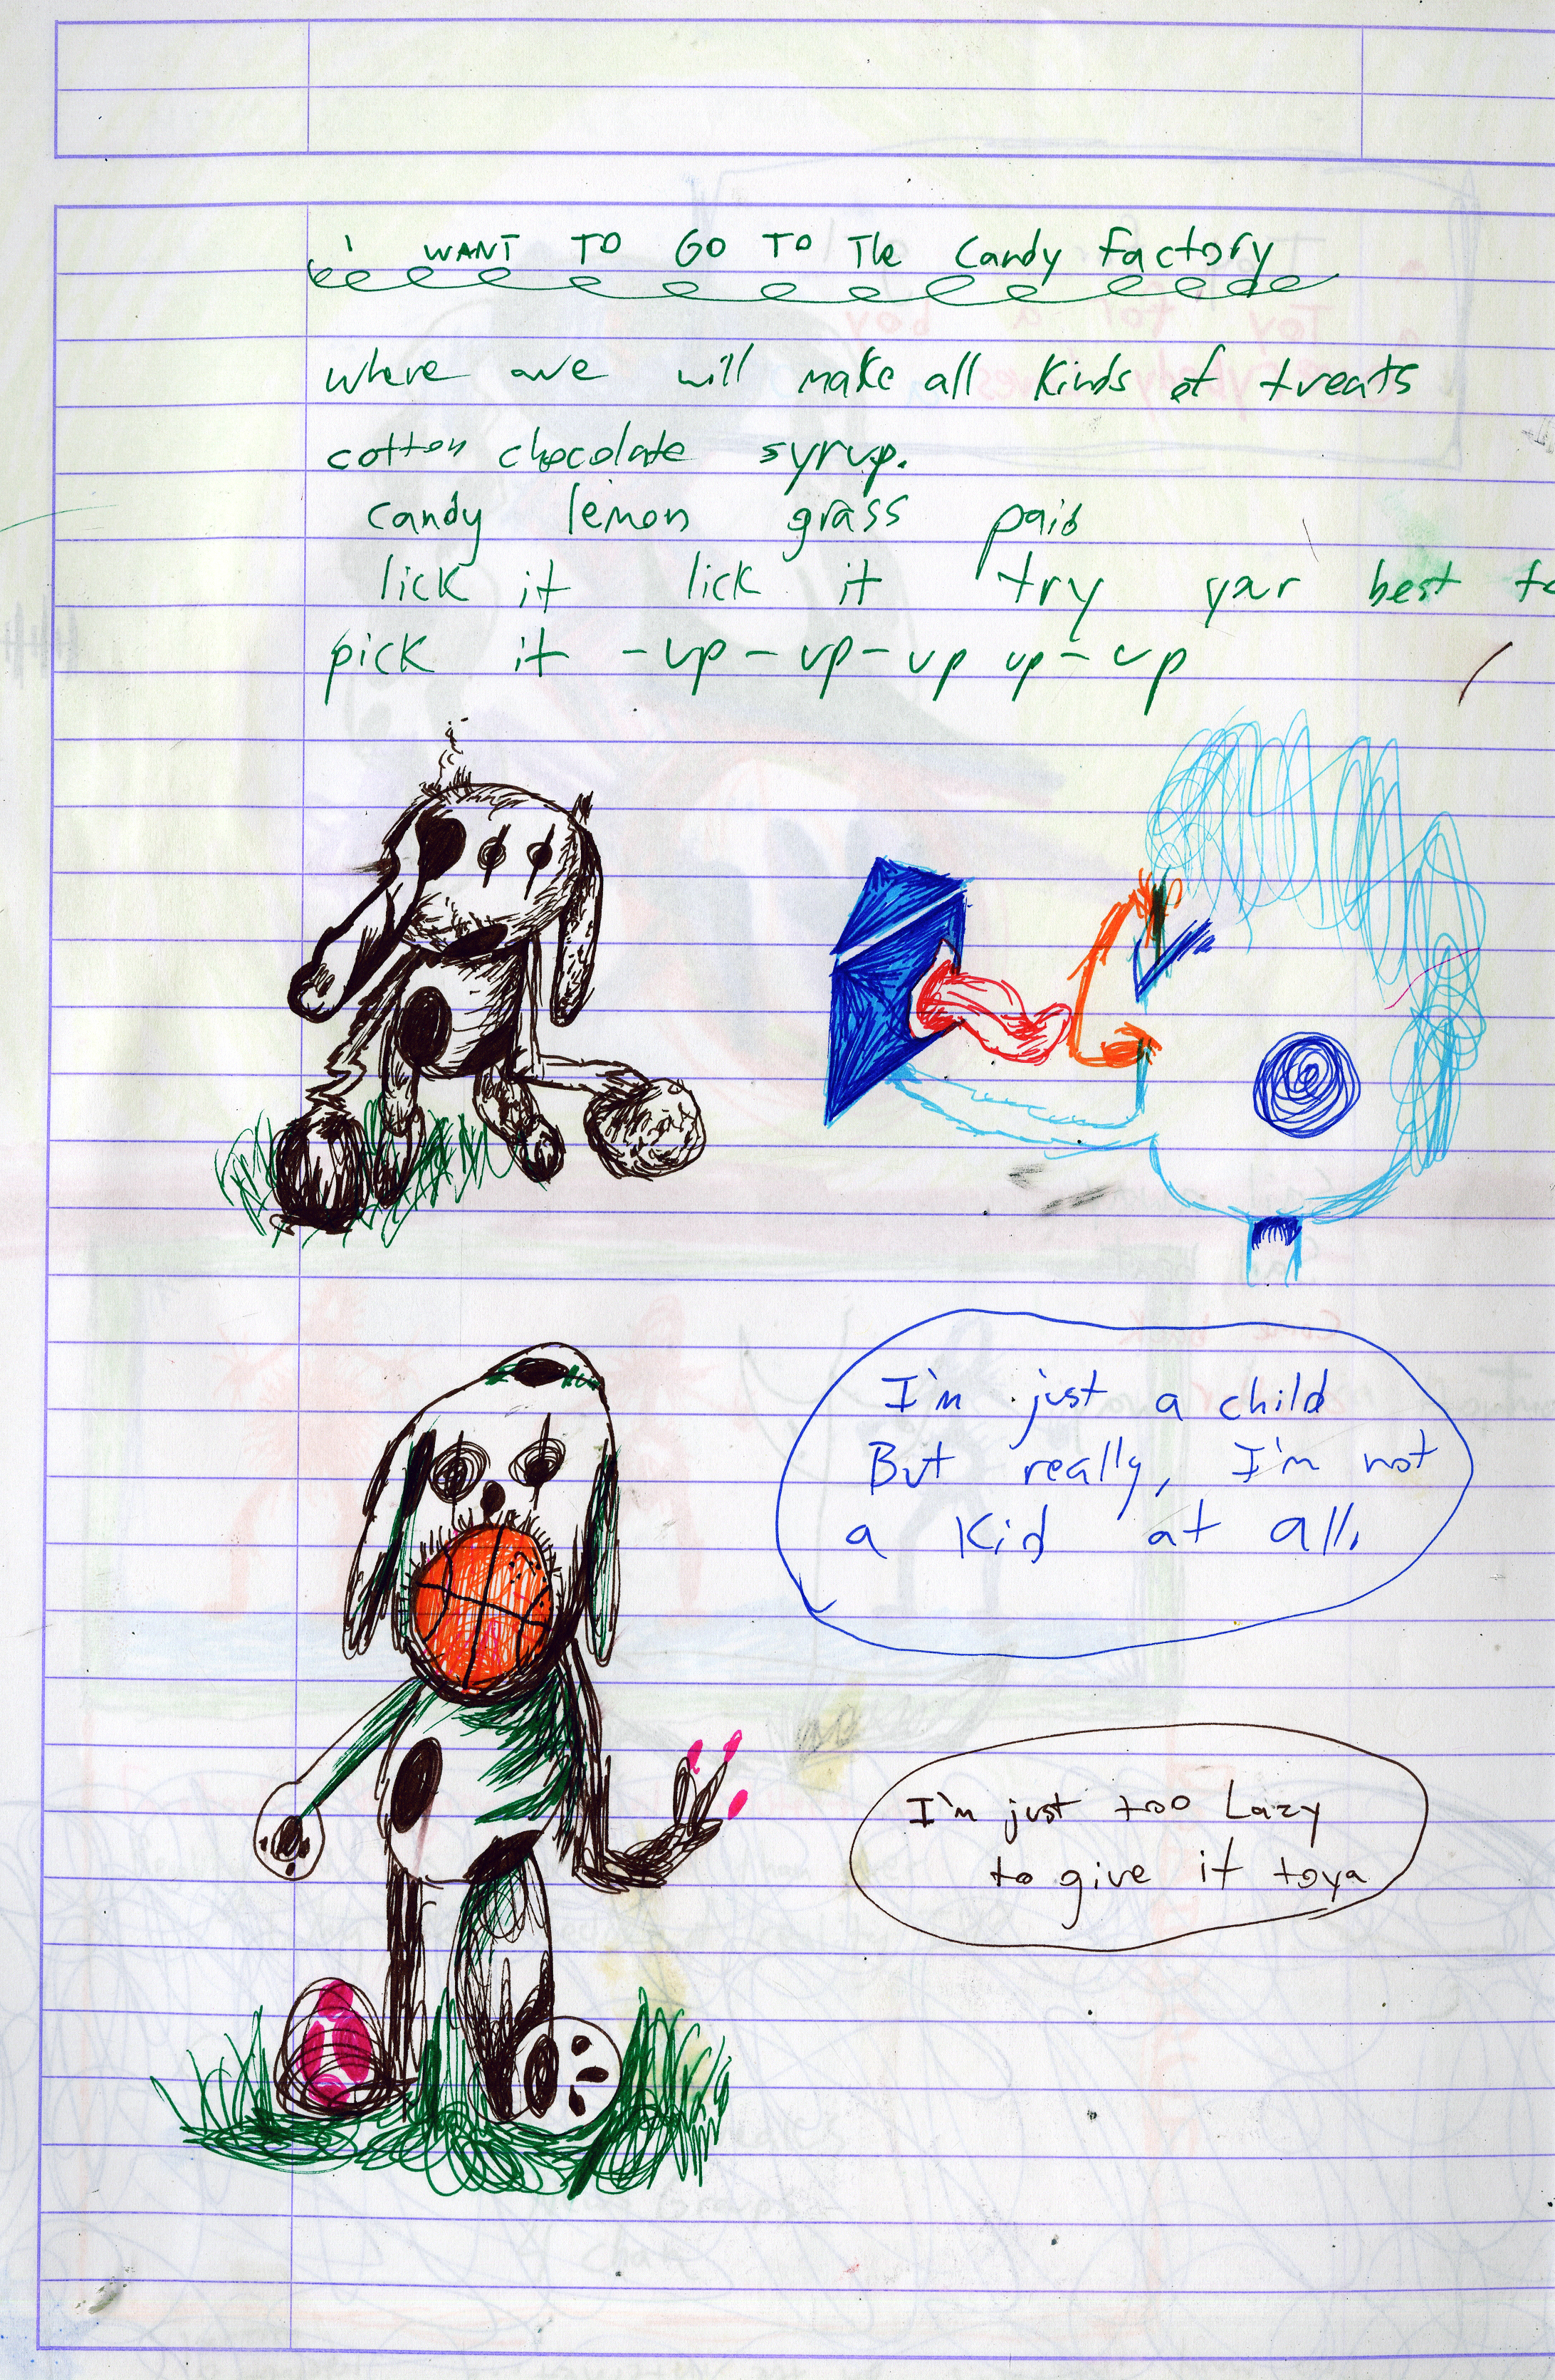 i WANT TO GO TO The Candy factory
where we will make all kinds of treats
cotton chocolate syrup.
candy lemon grass paid
lick it lick it try your best to
pick it -up-up-up up-up
I'm just a child
But really, I'm not
a Kid at all.
I'm just too Lazy
to give it toya